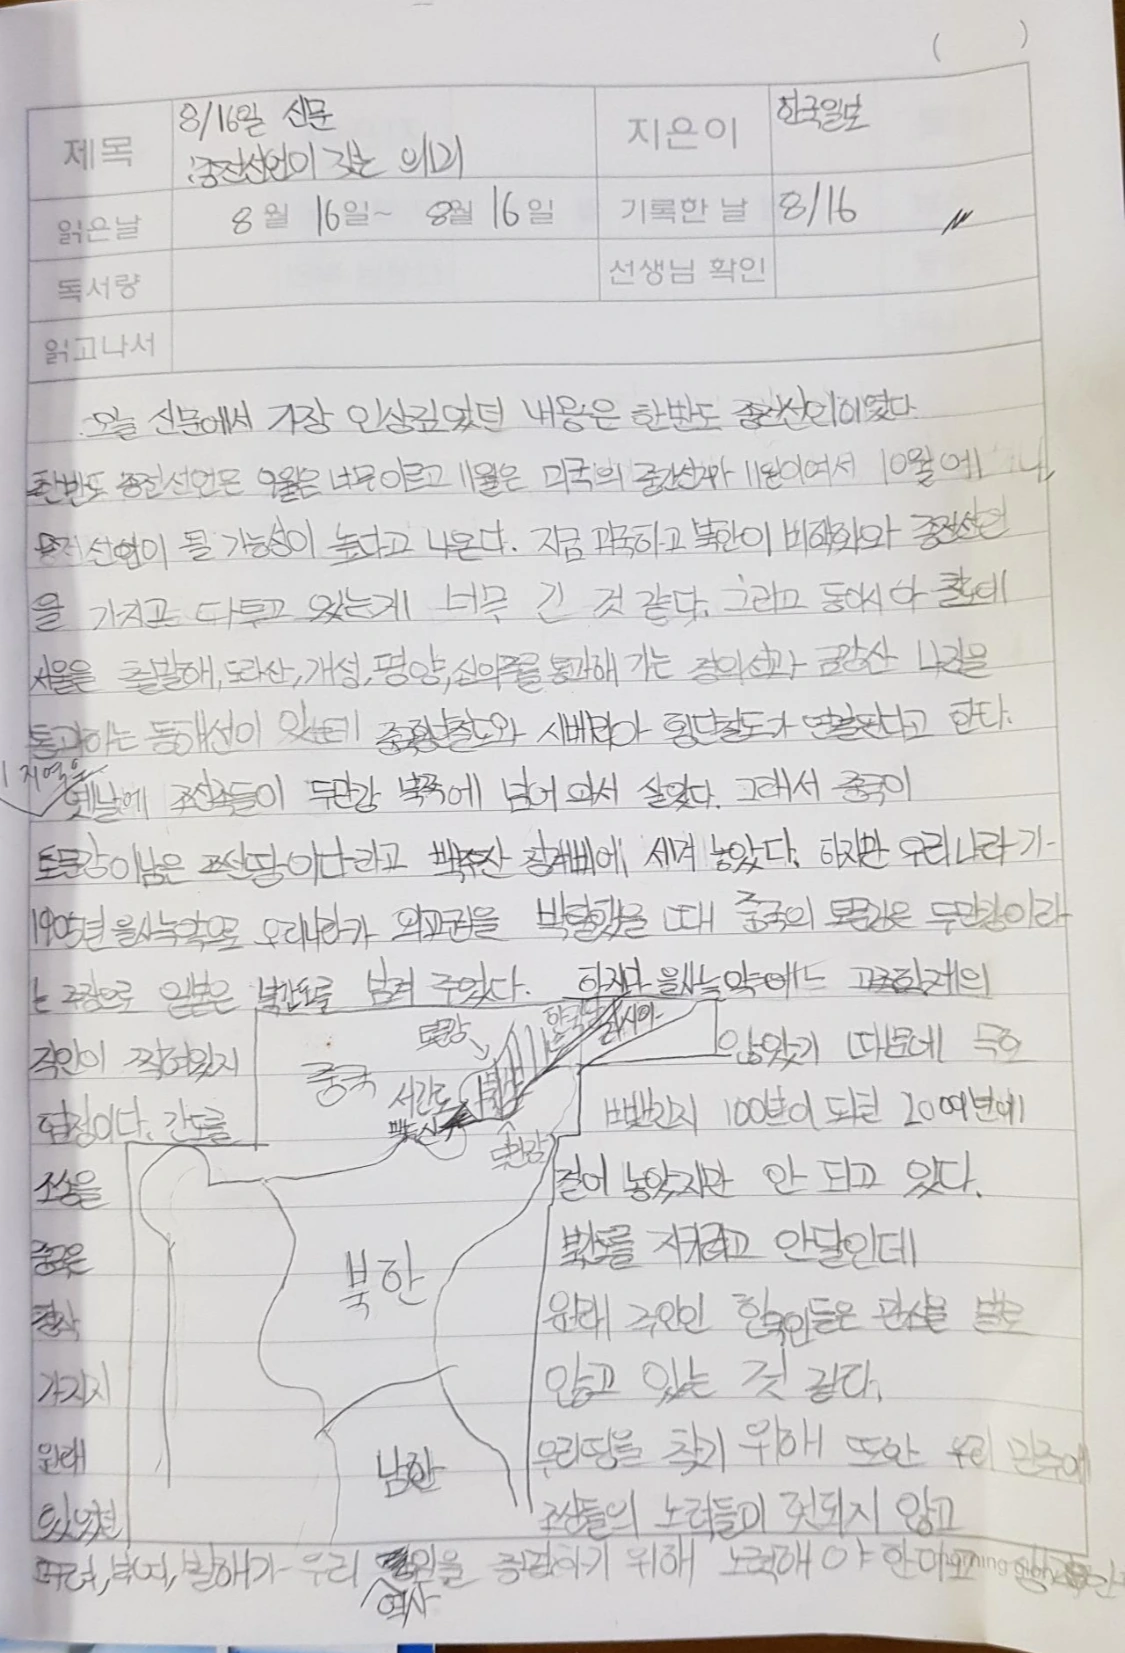 (          )
제목 8/16일 신문 지은이 한국일보
:종전선언이 갖는 의미
읽은날 8월 16일~ 8월 16일 기록한 날 8/16
독서량 선생님 확인
읽고나서
오늘 신문에서 가장 인상깊었던 내용은 한반도 종전선언이었다.
한반도 종전선언은 9월은 너무 이르고 11월은 미국의 중간선거가 11월이여서 10월에
종전선언이 될 가능성이 높다고 나온다. 지금 미국하고 북한이 비핵화와 종전선언
을 가지고 다투고 있는게 너무 긴 것 같다. 그리고 동아시아 철도에
서울을 출발해, 도라산, 개성, 평양, 신의주를 통과해 가는 경의선과 금강산 나진을
통과하는 동해선이 있는데 중국횡단철도와 시베리아 횡단철도가 연결된다고 한다.
지역은
옛날에 조선족들이 두만강 북쪽에 넘어 와서 살았다. 그래서 중국이
토문강 이남은 조선땅이다라고 백두산 정계비에 세겨 놓았다. 하지만 우리나라가
1905년 을사늑약으로 우리나라가 외교권을 박탈했을 때 중국의 토문강은 두만강이라
는 주장으로 일본은 북간도를 넘겨 주었다. 하지만 을사늑약에는 고종황제의
직인이 찍혀있지 않았기 때문에 국제
중국 토문강 서간도 한국 러시아
간도를 빼앗긴지 100년이 되던 2009년에
두만강
소송을 걸어 놓았지만 안 되고 있다.
중국은 북간도를 지키려고 안달인데
북한
원래 주인인 한국인들은 관심을 별로
가지지 않고 있는 것 같다.
원래 우리땅을 찾기 위해 또한 우리 민족에
남한
있었던 조상들의 노력들이 헛되지 않고
부여, 발해가 우리 역사 을 증명하기 위해 노력해야 한다고